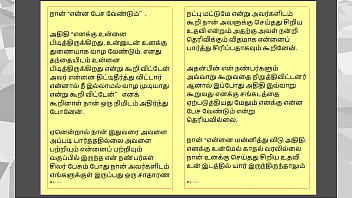 நான் "என்ன பேச வேண்டும்" .
அதிதி "எனக்கு உன்னை
பிடித்திருக்கிறது, உன்னுடன் எனக்கு
துணையாக வாழ வேண்டும். எனது
தந்தையிடம் உன்னை
பிடித்திருக்கிறது என்று கூறி விட்டேன்
அவர் என்னை திட்டித்தீர்த்து விட்டார்
என்னால் நீ இல்லாமல் வாழ முடியாது
என்று கூறி விட்டேன்" என்று
கூறினாள் நான் ஒரு நிமிடம் அதிர்ந்து
போனேன்.
ஏனென்றால் நான் இதுவரை அவளை
அப்படி பார்த்ததில்லை அவளை
பற்றியும் என்னைப் பற்றியும்
வகுப்பில் இருந்த என் நண்பர்கள்
சிலர் பேசும் போது நான் அவர்களிடம்
எங்களுக்குள் இருப்பது ஒரு சாதாரண
நட்பு மட்டுமே என்று அவர்களிடம்
கூறி நான் அவளுக்கு செய்தது சிறிய
உதவி என்றும் அதற்கு அவள் நன்றி
தெரிவிக்கும் விதமாக என்னைப்
பார்த்து சிரிப்பதாகவும் கூறினேன்.
அதன்பின் என் நண்பர்களும்
அவ்வாறு கூறுவதை நிறுத்திவிட்டனர்
ஆனால் இப்போது அதிதி இவ்வாறு
கூறுவது எனக்கு சங்கடத்தை
ஏற்படுத்தியது மேலும் எனக்கு என்ன
பேச வேண்டும் என்று
தெரியவில்லை.
நான் "என்னை மன்னித்து விடு அதிதி.
எனக்கு உன்மேல் காதல் வரவில்லை
நான் உனக்கு செய்தது சிறிய உதவி
உன் இடத்தில் யார் இருந்திருந்தாலும்